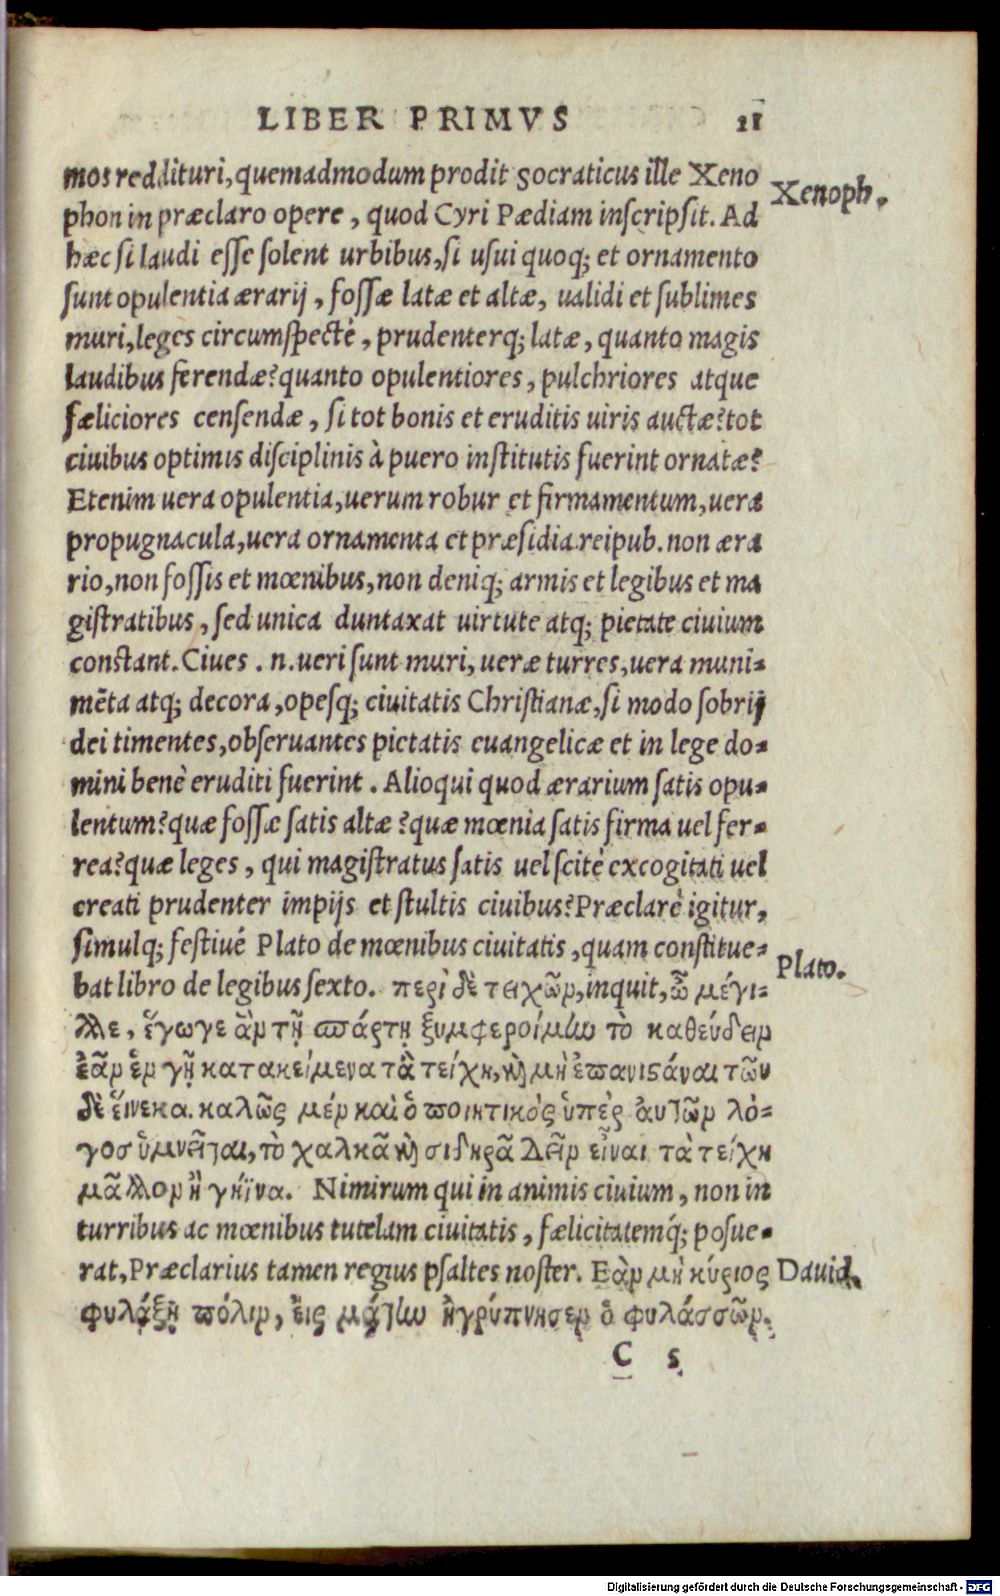 LIBER PRIMVS 21
mos reddituri, quemadmodum prodit Socraticus ille Xeno
Xenoph.
phon in præclaro opere, quod Cyri Pædiam inscripsit. Ad
hæc si laudi esse solent urbibus, si usui quoq; et ornamento
sunt opulentia ærarij, fossæ latæ et altæ, ualidi et sublimes
muri, leges circumspectè, prudenterq; latæ, quanto magis
laudibus ferendæ? quanto opulentiores, pulchriores atque
fæliciores censendæ, si tot bonis et eruditis uiris auctæ? tot
ciuibus optimis disciplinis à puero institutis fuerint ornatæ?
Etenim uera opulentia, uerum robur et firmamentum, uera
propugnacula, uera ornamenta et præsidia reipub. non æra
rio, non fossis et mœnibus, non deniq; armis et legibus et ma
gistratibus, sed unica duntaxat uirtute atq; pietate ciuium
constant. Ciues .n. ueri sunt muri, ueræ turres, uera muni-
mēta atq; decora, opesq; ciuitatis Christianæ, si modo sobrij
dei timentes, obseruantes pietatis euangelicæ et in lege do-
mini benè eruditi fuerint. Alioqui quod ærarium satis opu-
lentum? quæ fossæ satis altæ? quæ mœnia satis firma uel fer-
rea? quæ leges, qui magistratus satis uel scitè excogitati uel
creati prudenter impijs et stultis ciuibus? Præclarè igitur,
simulq; festiué Plato de mœnibus ciuitatis, quam constitue-
Plato.
bat libro de legibus sexto. περὶ δὲ τειχῶν, inquit, ὦ μέγι-
λλε, ἔγωγε ἂν τῇ σπάρτῃ ξυμφεροίμην τὸ καθεύδειν
ἐᾶν ἐν γῇ κατακείμενα τὰ τείχη, καὶ μὴ ἐπανιστάναι τῶν
δὲ εἵνεκα. καλῶς μὲν καὶ ὁ ποιητικὸς ὑπὲρ αὐτῶν λό-
γοσ ὑμνεῖται, τὸ χαλκᾶ καὶ σιδηρᾶ δεῖν εἶναι τὰ τείχη
μᾶλλον ἢ γήϊνα. Nimirum qui in animis ciuium, non in
turribus ac mœnibus tutelam ciuitatis, fælicitatemq́; posue-
rat, Præclarius tamen regius psaltes noster. Ἐὰν μὴ κύριος
Dauid.
φυλάξῃ πόλιν, εἰς μάτην ἠγρύπνησεν ὁ φυλάσσων.
C 5
Digitalisierung gefördert durch die Deutsche Forschungsgemeinschaft - DFG